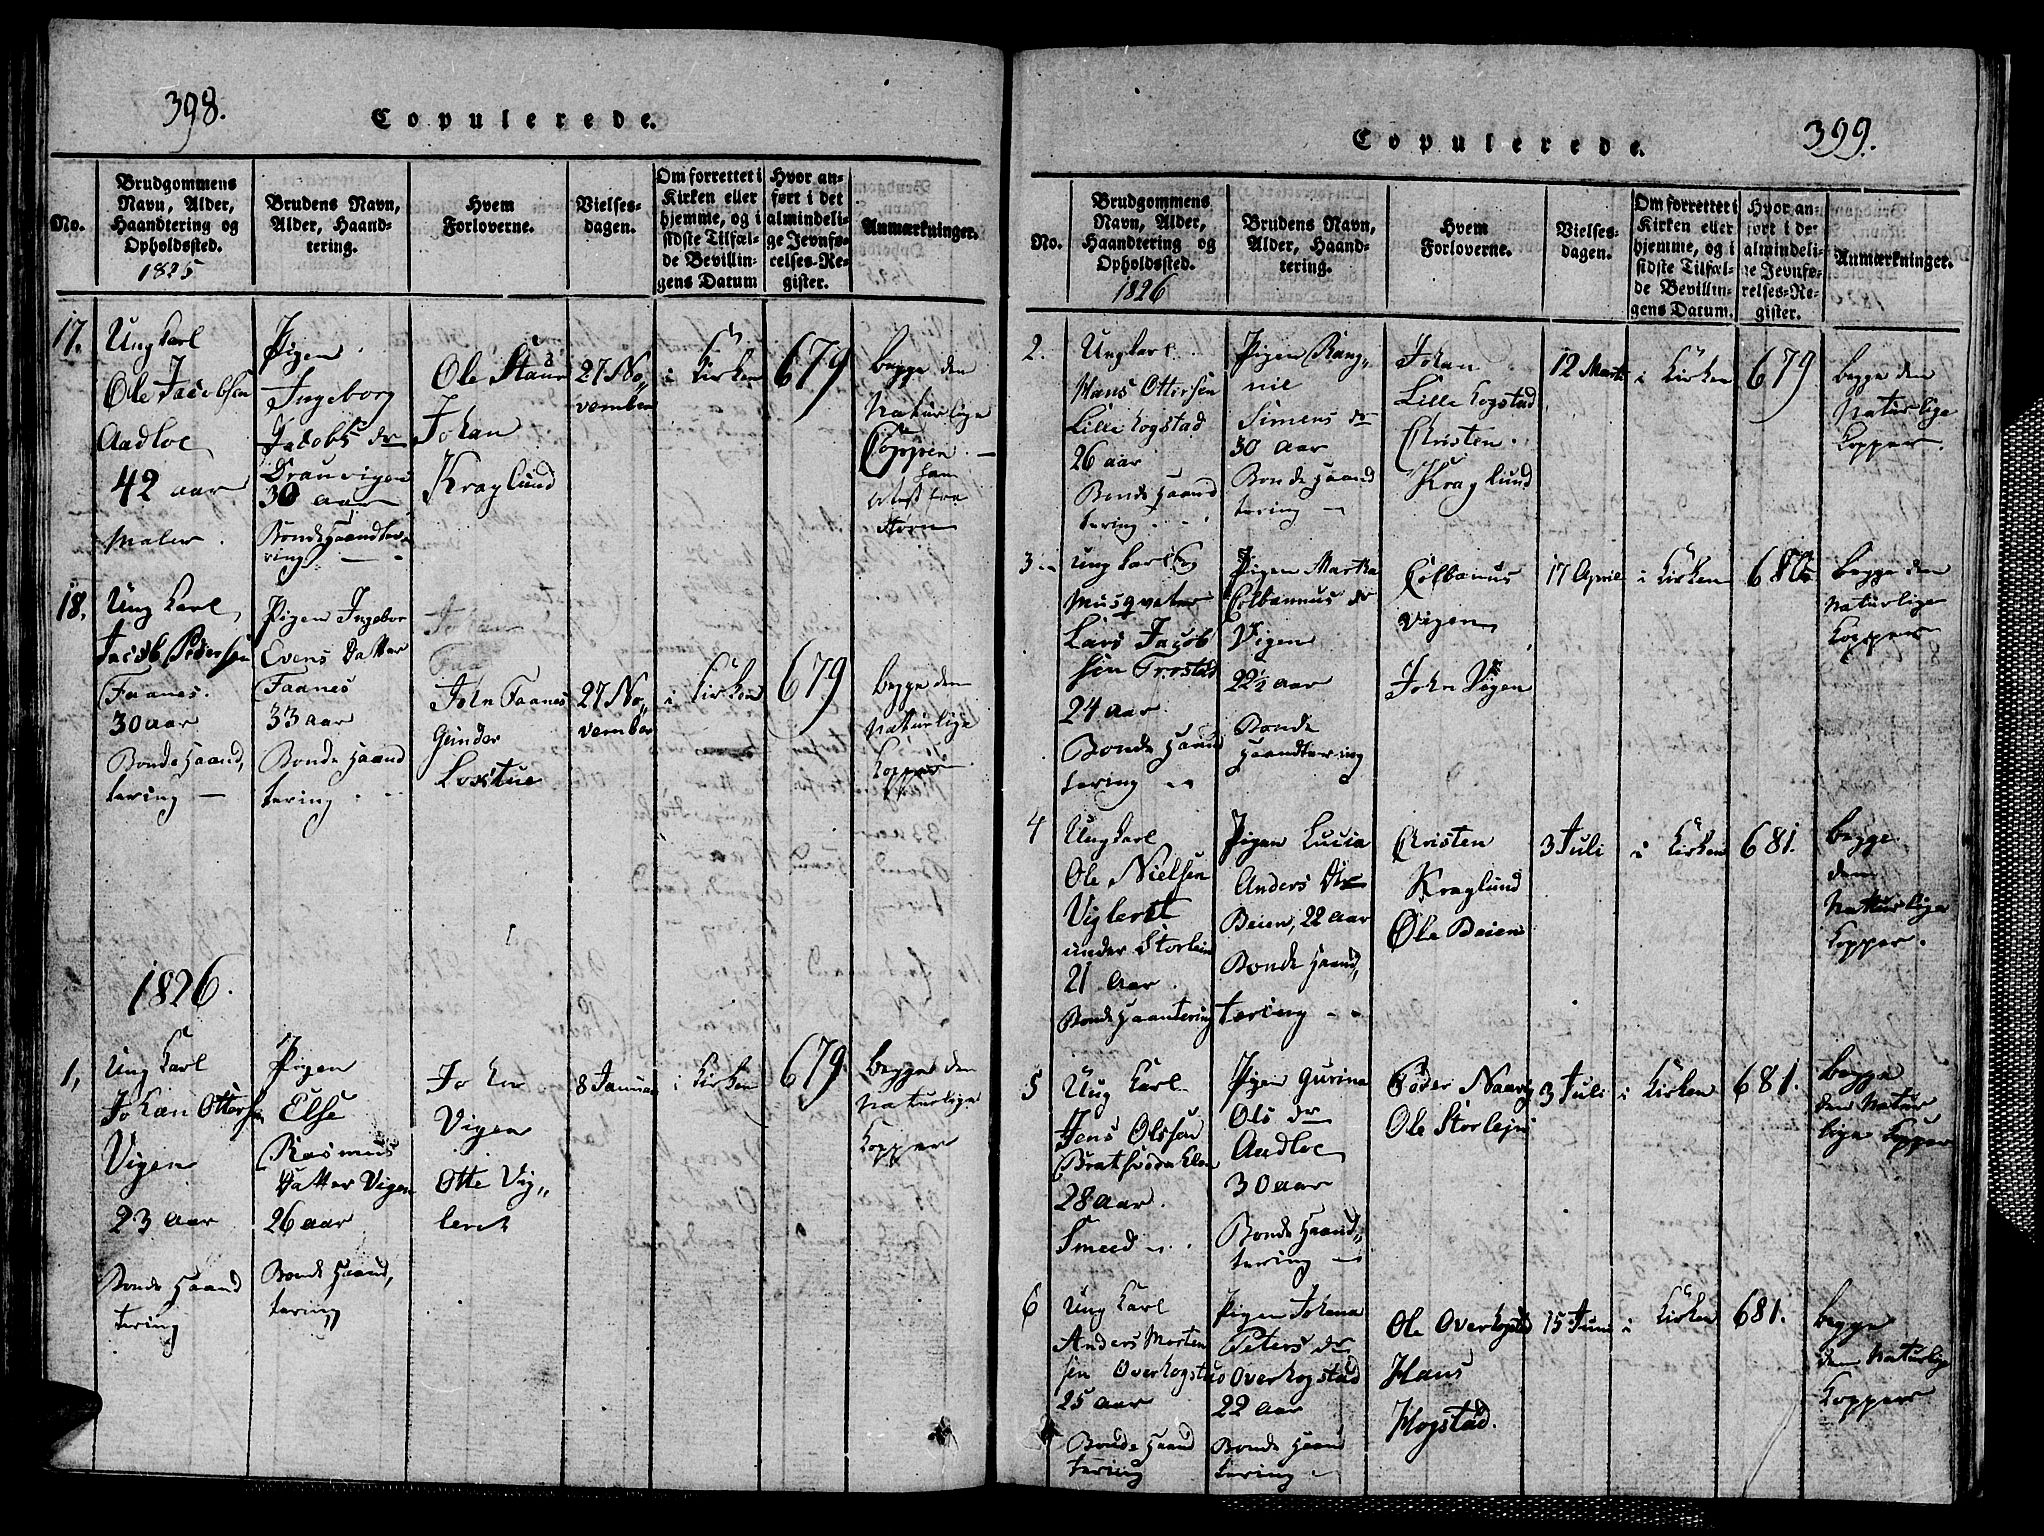 398.
Copulerede.
No.
Brudgommens
Navn, Alder,
Haandtering og
Opholdssted.
1825
Brudens Navn,
Alder, Haand-
tering.
Hvem
Forloverne.
Vielses-
dagen.
Om forrettet i
Kirken eller
hjemme, og i
sidste Tilfæl-
de Bevillin-
gens Datum
Hvor an-
ført i det
almindeli-
ge Jevnfø-
relses-Re-
gister.
Anmærkninger.
17.
Ung Karl
Ole Jacobsen
Aadloe
42 aar
Maler.
Pigen
Ingeborg
Jacobs dr
30 aar
Bonde Haandte-
ring
Ole
Johan
Kraglund
27 No„
vember
i Kirken
679
begge den
Naturlige
Kopper
18.
Ung Karl
Jacob Pedersen
Faanes.
30 aar
Bonde Haand,
tering
Pigen Ingebor
Evens Datter
Faanes
33 aar
Bonde Haand
tering
John Faanes
Gunder
Loxtue
27 No„
vember
i Kirken
679
begge den
Naturlige
Kopper
1826.
1,
Ung Karl
Johan Ottersen
Vigen
23 aar
Bonde Haand
tering
Pigen
Else
Rasmus
Datter Vigen
26 aar
Bonde Haand,
tering
John
Vigen
Otte Vig„
leret
8 Januar
i Kirken
679.
begge den
Naturlige
Kopper
399.
Copulerede.
No.
Brudgommens
Navn, Alder,
Haandtering og
Opholdssted.
1826
Brudens Navn,
Alder, Haand-
tering.
Hvem
Forloverne.
Vielses-
dagen.
Om forrettet i
Kirken eller
hjemme, og i
sidste Tilfæl-
de Bevillin-
gens Datum.
Hvor an-
ført i det
almindeli-
ge Jevnfø-
relses-Re-
gister.
Anmærkninger.
2.
Ungkarl
Hans Ottersen
Lille Hogstad
26 aar
Bonde Haand
tering
Pigen Rang„
nil
Simens dr
30 aar
Bonde Haand
tering
Johan
Lille Hogstad
Christen
Kraglund
12 Marti
i Kirken
679
begge den
Naturlige
Kopper.
3
Ung Karl og
Musqvater
Lars Jacob
sen Trostad
24 aar
Bonde Haand
tering
Pigen Martha
Colbannus dr
Vigen
22½ aar
Bonde
Haandtering
Colbanus
Vigen
John Vigen
17 April
i Kirken
680
begge den
Naturlige
Kopper
4
Ungkarl
Ole Nielsen
Vigleret
under Storlein
21 aar
Bonde Haantering
Pigen Lucia
Anders Dr
Beien, 22 aar
Bonde Haand,
tering
Christen
Kraglund
Ole Beien
3 Juli
i Kirken
681.
begge
den
Naturlige
Kopper.
5
Ung Karl
Jens Olssen
28 aar.
Smeed
Pigen Gurina
Ols dr
Aadloe
30 aar
Bonde Haand„
tering
Peder Naavig
Ole Storlejn
3 Juli
i Kirken
681.
begge
den Natur
lige Kopper
6
Ung Karl
Anders Morten
sen Overhogstad
25 aar
Bonde Haand
tering
Pigen Johana
Peters dr
Overhogstad
22 aar
Bonde Haand
tering
Ole Overhogstad
Hans
Hogstad.
15 Juni
i Kirken
681.
begge
den Naturlige
Kopper